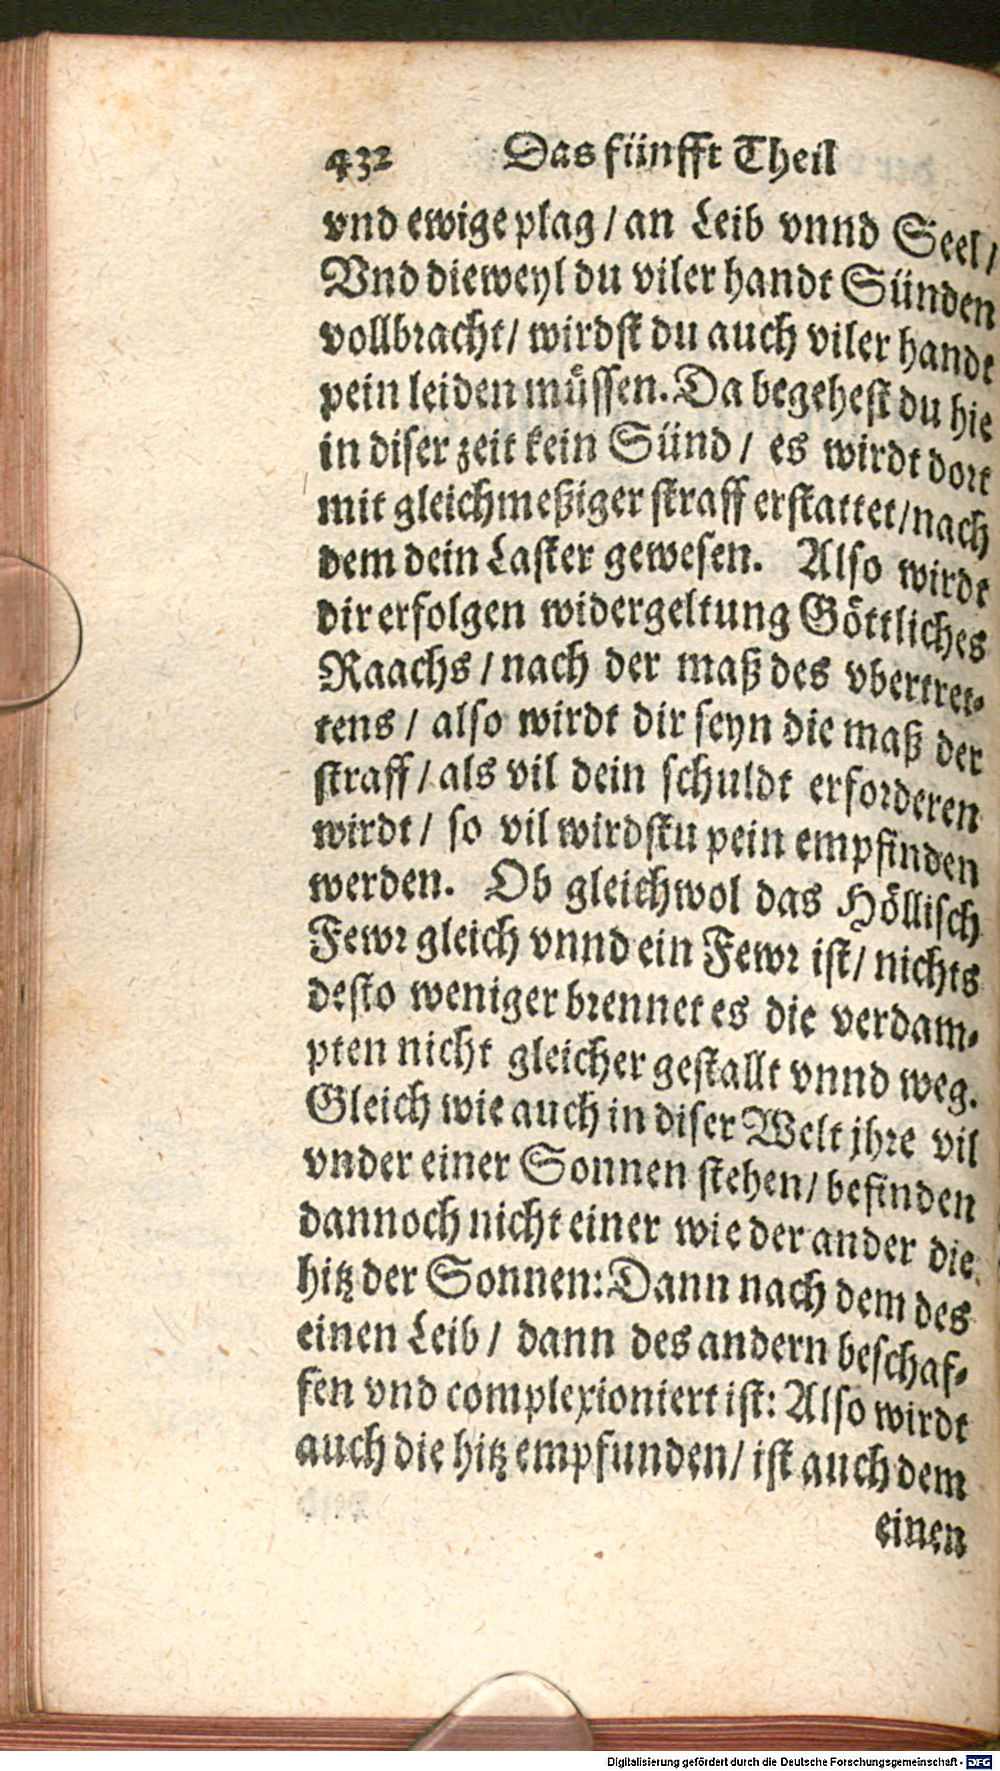 432 Das fünfft Theil
vnd ewige plag / an Leib vnnd Seel /
Vnd dieweyl du viler handt Sünden
vollbracht / wirdst du auch viler handt
pein leiden müssen. Da begehest du hie
in diser zeit kein Sünd / es wirdt dort
mit gleichmeßiger straff erstattet / nach
dem dein Laster gewesen. Also wirdt
dir erfolgen widergeltung Göttliches
Raachs / nach der maß des vbertret-
tens / also wirdt dir seyn die maß der
straff / als vil dein schuldt erforderen
wirdt / so vil wirdstu pein empfinden
werden. Ob gleichwol das Höllisch
Fewr gleich vnnd ein Fewr ist / nichts
desto weniger brennet es die verdam-
pten nicht gleicher gestallt vnnd weg.
Gleich wie auch in diser Welt jhre vil
vnder einer Sonnen stehen / befinden
dannoch nicht einer wie der ander die
hitz der Sonnen: Dann nach dem des
einen Leib / dann des andern beschaf-
fen vnd complexioniert ist: Also wirdt
auch die hitz empfunden / ist auch dem
einen
Digitalisierung gefördert durch die Deutsche Forschungsgemeinschaft - DFG